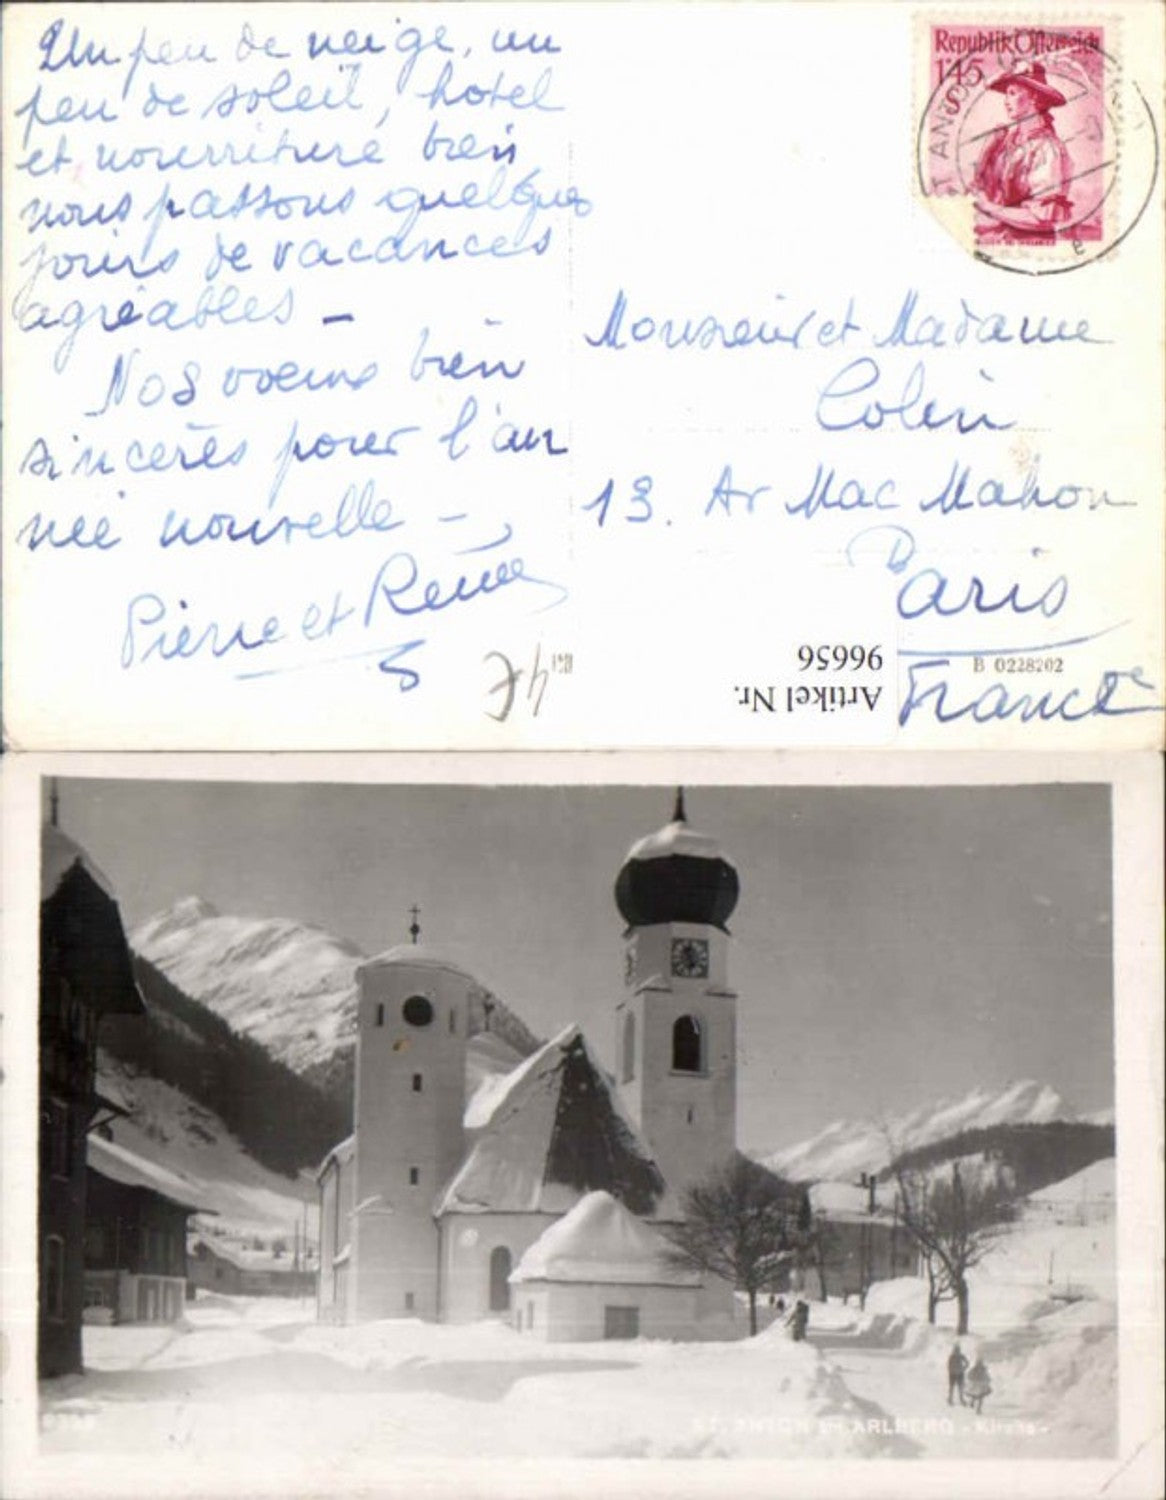 Un peu de neige, un
peu de soleil, hotel
et nourriture bien
nous passons quelques
jours de vacances
agréables –
Nos voeux bien
sincères pour l'an
née nouvelle –
Pierre et Renée
Republik Österreich
1'45
S
T ANTON
e
Monsieur et Madame
Colin
13. Av Mac Mahon
Paris
France
B 0228202
Artikel Nr.
96656
4€
ST. ANTON am ARLBERG - Kirche -